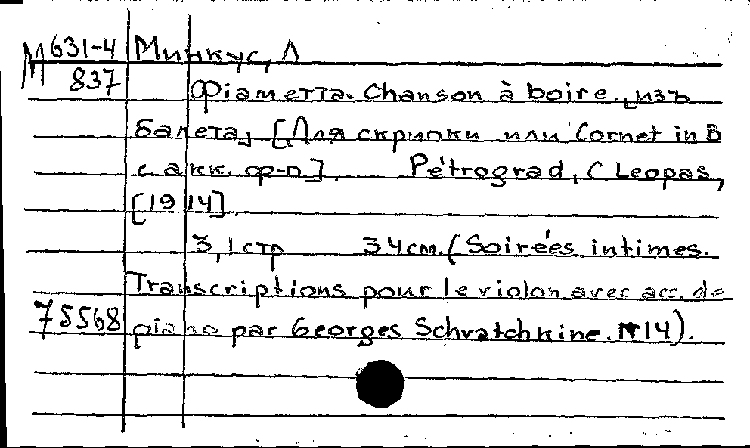 М 631-4 Минкус, Л
837
Фiаметта. Chanson à boire, [изъ
балета] [Для скрипки или Cornet in B
с акк. ф-п]. Pétrograd, C Leopas,
[1914]
3, 1 стр 34см. (Soirées intimes.
Transcriptions pour le violon avec acc. de
75568 piano par Georges Schvatchkine. №14).